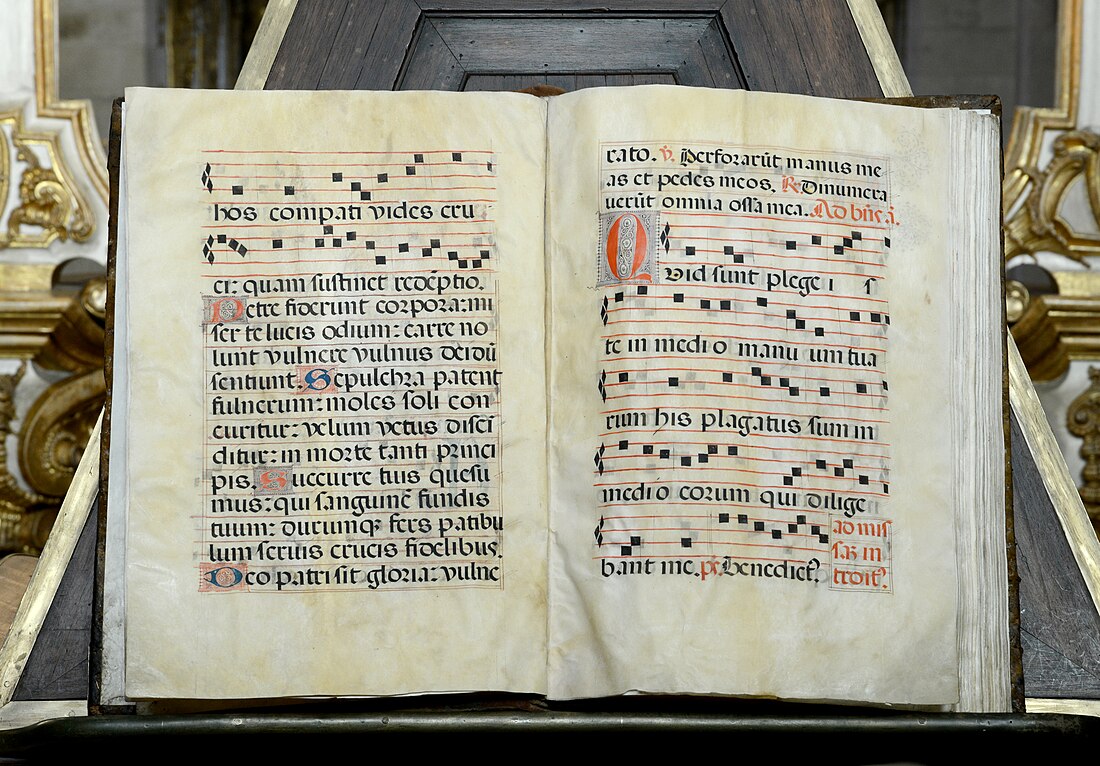 hos compati vides cru
ci: quam sustinet redēptio.
Petre fiderunt corpora: mi
ser te lucis odium: carre no
lunt vulnere vulnus dei dū
sentiunt. Sepulchra patent
fulnerum: moles soli con
curitur: velum vetus disci
ditur: in morte tanti princi
pis. Succurre tuis quesu
mus: qui sanguinē fundis
tuum: durumqꝫ fers patibu
lum seruis crucis fidelibus.
Deo patri sit gloria: vulne
rato. ꝟ. Perforarūt manus me
as et pedes meos. ℞ Dinumera
uerūt omnia ossa mea. Ad bñs. ã.
Quid sunt plege i s
te in medio manuum tua
rum his plagatus sum in
medio eorum qui dilige
bant me. ps. Benedict9. ad mis
saz in
troit9.